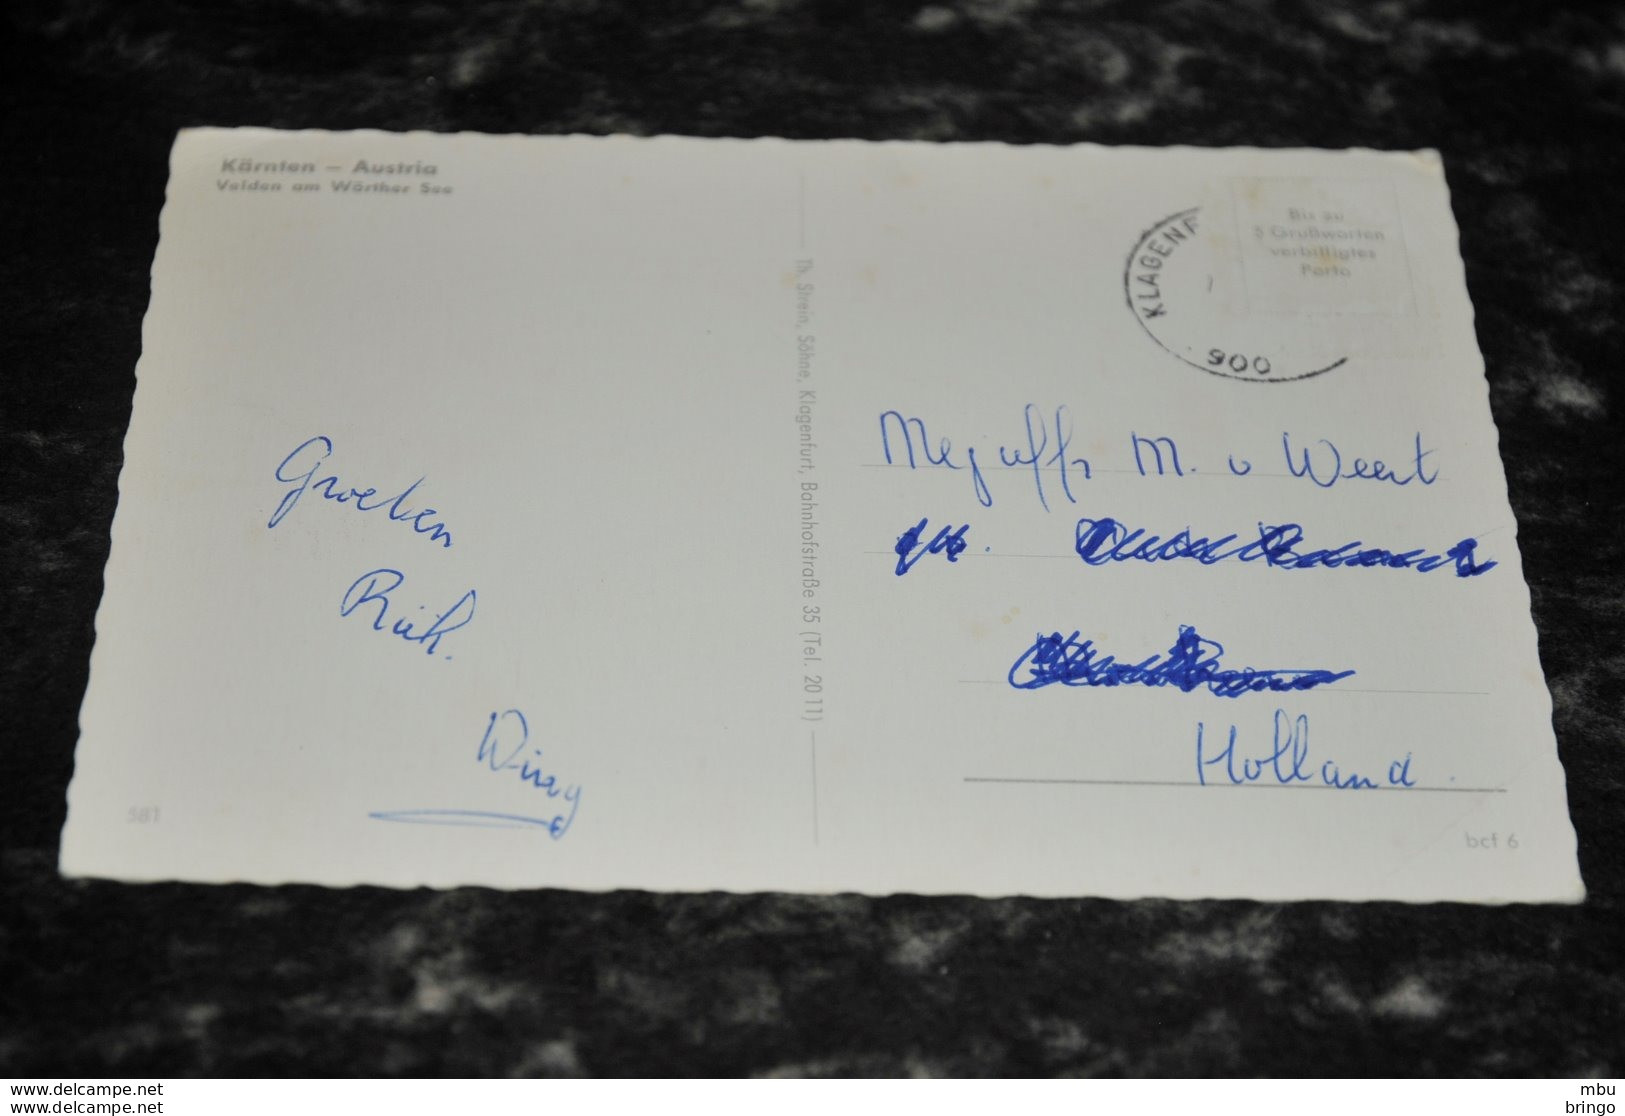 Kärnten – Austria
Velden am Wörther See
Bis zu
5 Grußworten
verbilligtes
Porto
KLAGENF
900
Th. Strein, Söhne, Klagenfurt, Bahnhofstraße 35 (Tel. 20 11)
Mejuffr M. v Weert
Groeten
Holland.
581
bcf 6
www.delcampe.net
www.delcampe.net
mbu
bringo